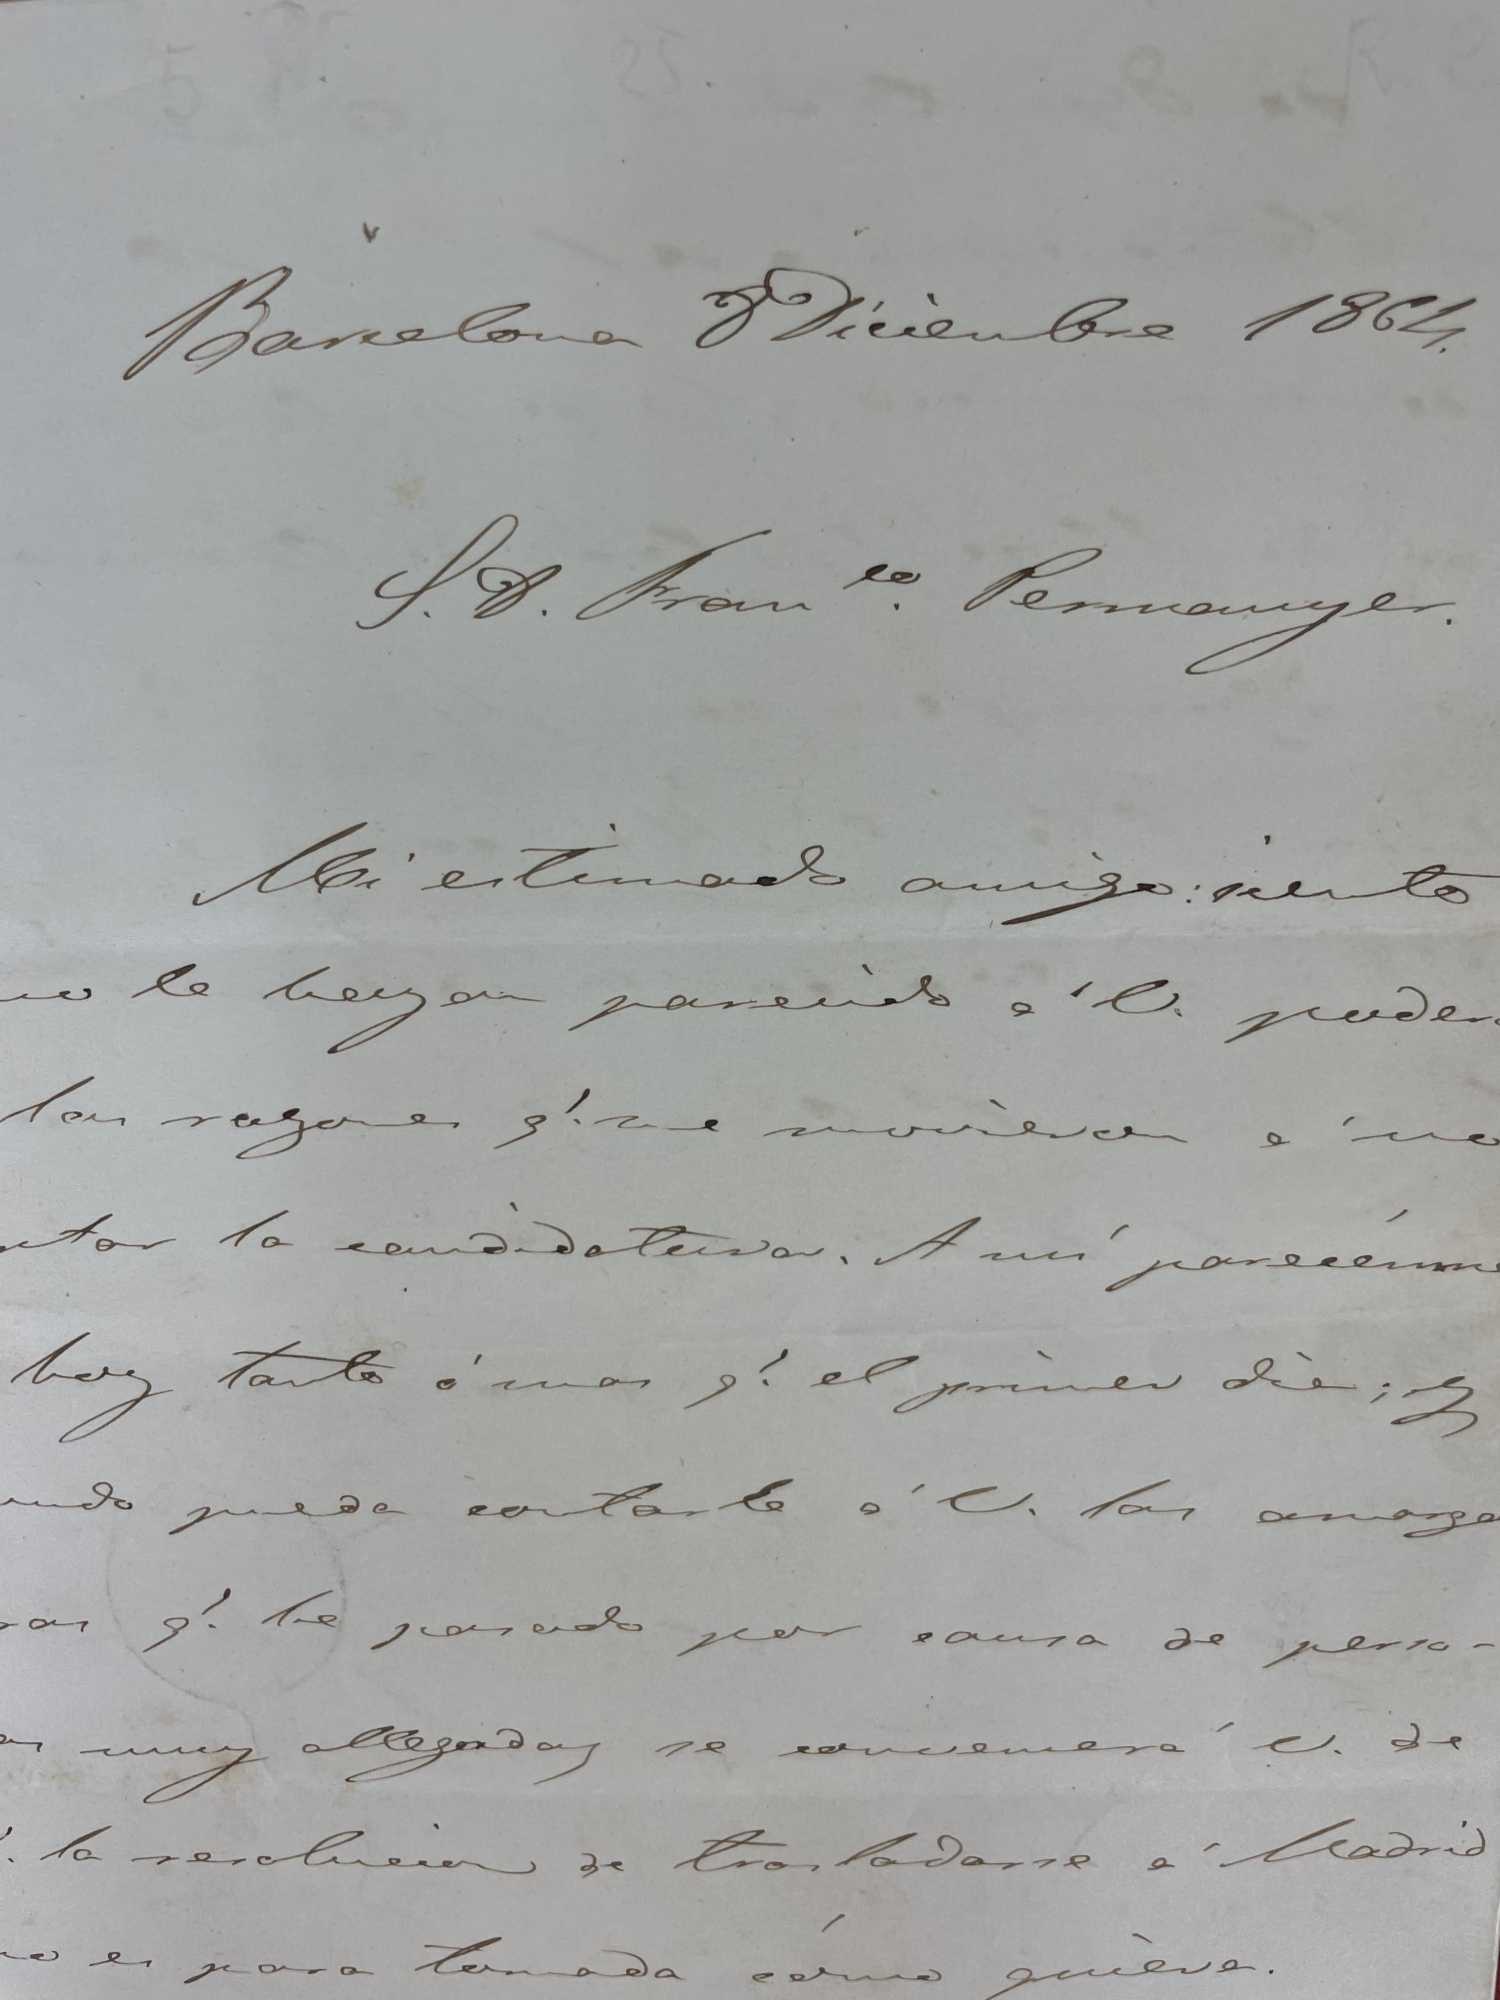 Barcelona 8 Diciembre 1864.
S. D. Fran.co Permanyer.
Mi estimado amigo: siento
no le hayan parecido á V. poder
las razones q.e me movieron á no
la candidatura. A mí parecénme
hoy tanto ó mas q.e el primer dia; y
pueda contarle á V. las amarga
ras q.e he pasado por causa de perso-
as muy allegadas se convencerá V. de
la resolucion de trasladarse á Madrid
no es para tomada cómo quiera.